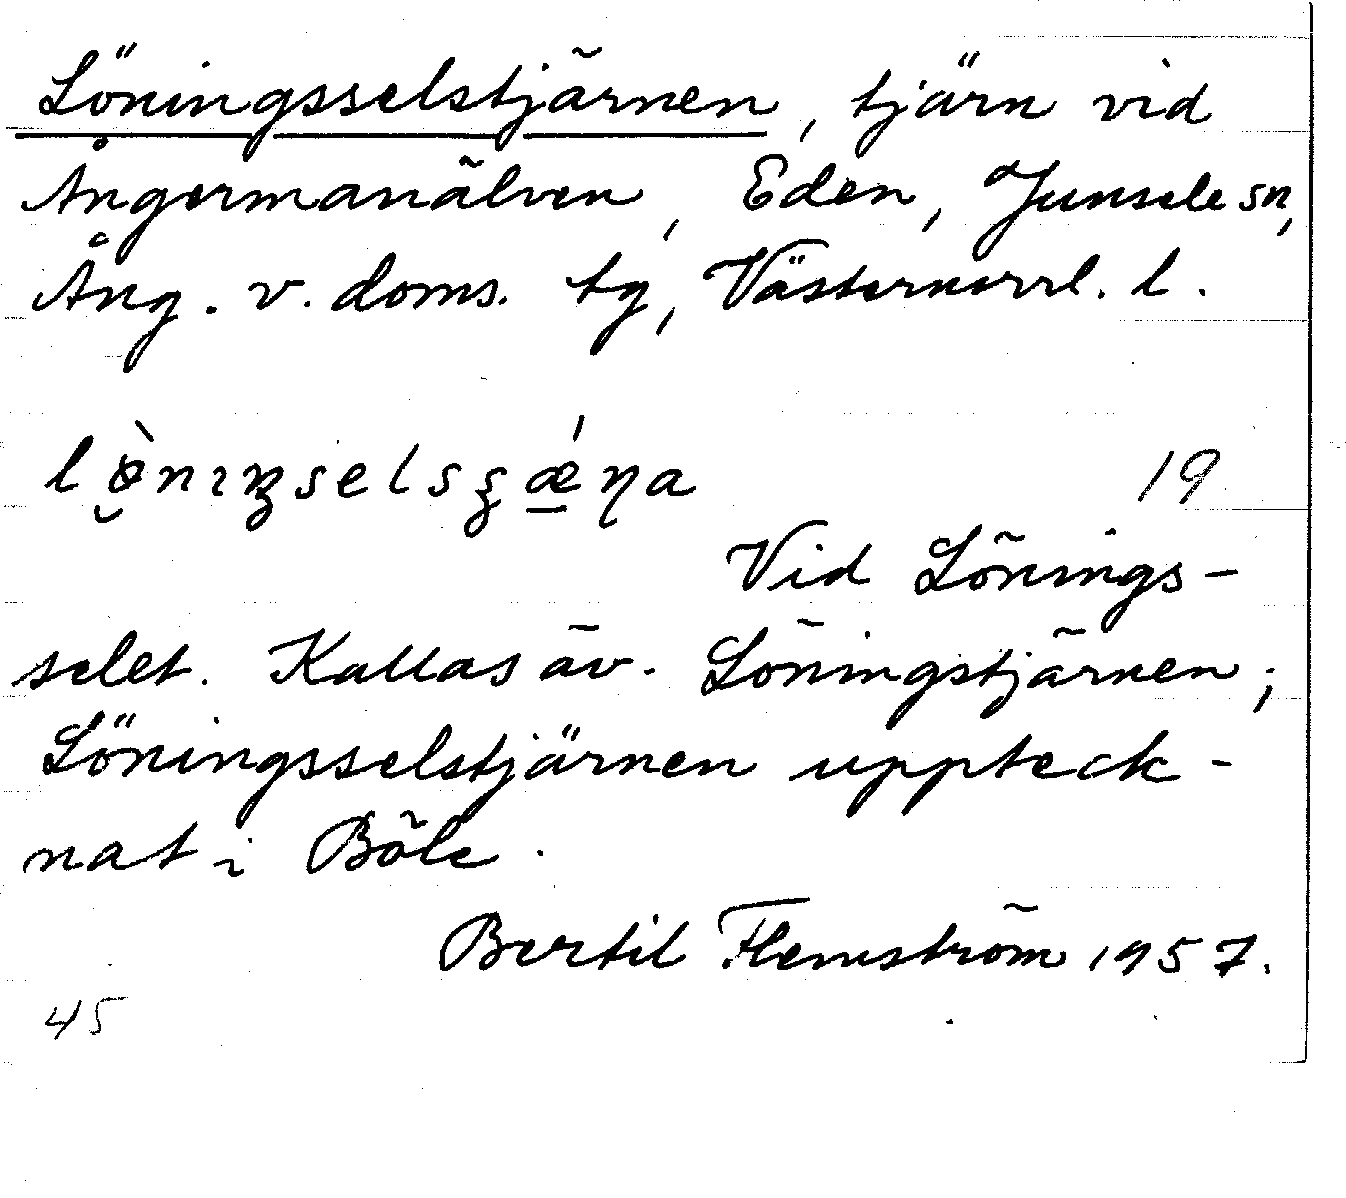 Löningsselstjärnen, tjärn vid
Ångermanälven, Eden, Junsele sn,
Ång. v. doms. tg, Västernorrl. l.
19
Vid Lönings-
selet. Kallas äv. Löningstjärnen;
Löningsselstjärnen uppteck-
nat i Böle.
Bertil Flemström 1957.
45